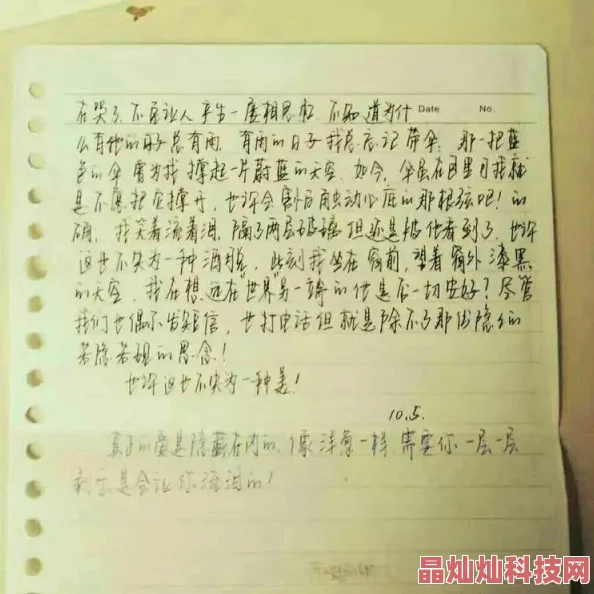 在哭了,不至让人产生一度相思愁,不知道为什 Date No.
么有他的日子总有雨,有雨的日子我总忘记带伞,那一把蓝
色的伞曾为我撑起一片蔚蓝的天空,如今,伞虽在包里可我就
是不愿把它撑开,也许会割白触动心底的那根弦吧!的
确,我笑着流着泪,隔了两层玻璃但还是被他看到了,也许
这也不失为一种洒脱,此刻我坐在窗前,望着窗外漆黑
的天空,我在想,远在世界另一端的他是否一切安好?尽管
我们也偶尔发短信,也打电话但就是除不了那份隐隐的
若隐若现的思念!
也许这也不失为一种美!
10.5.
真正的爱是隐藏在内的,像洋葱一样需要你一层一层
剥 是会让你流泪的!
晶灿灿科技网